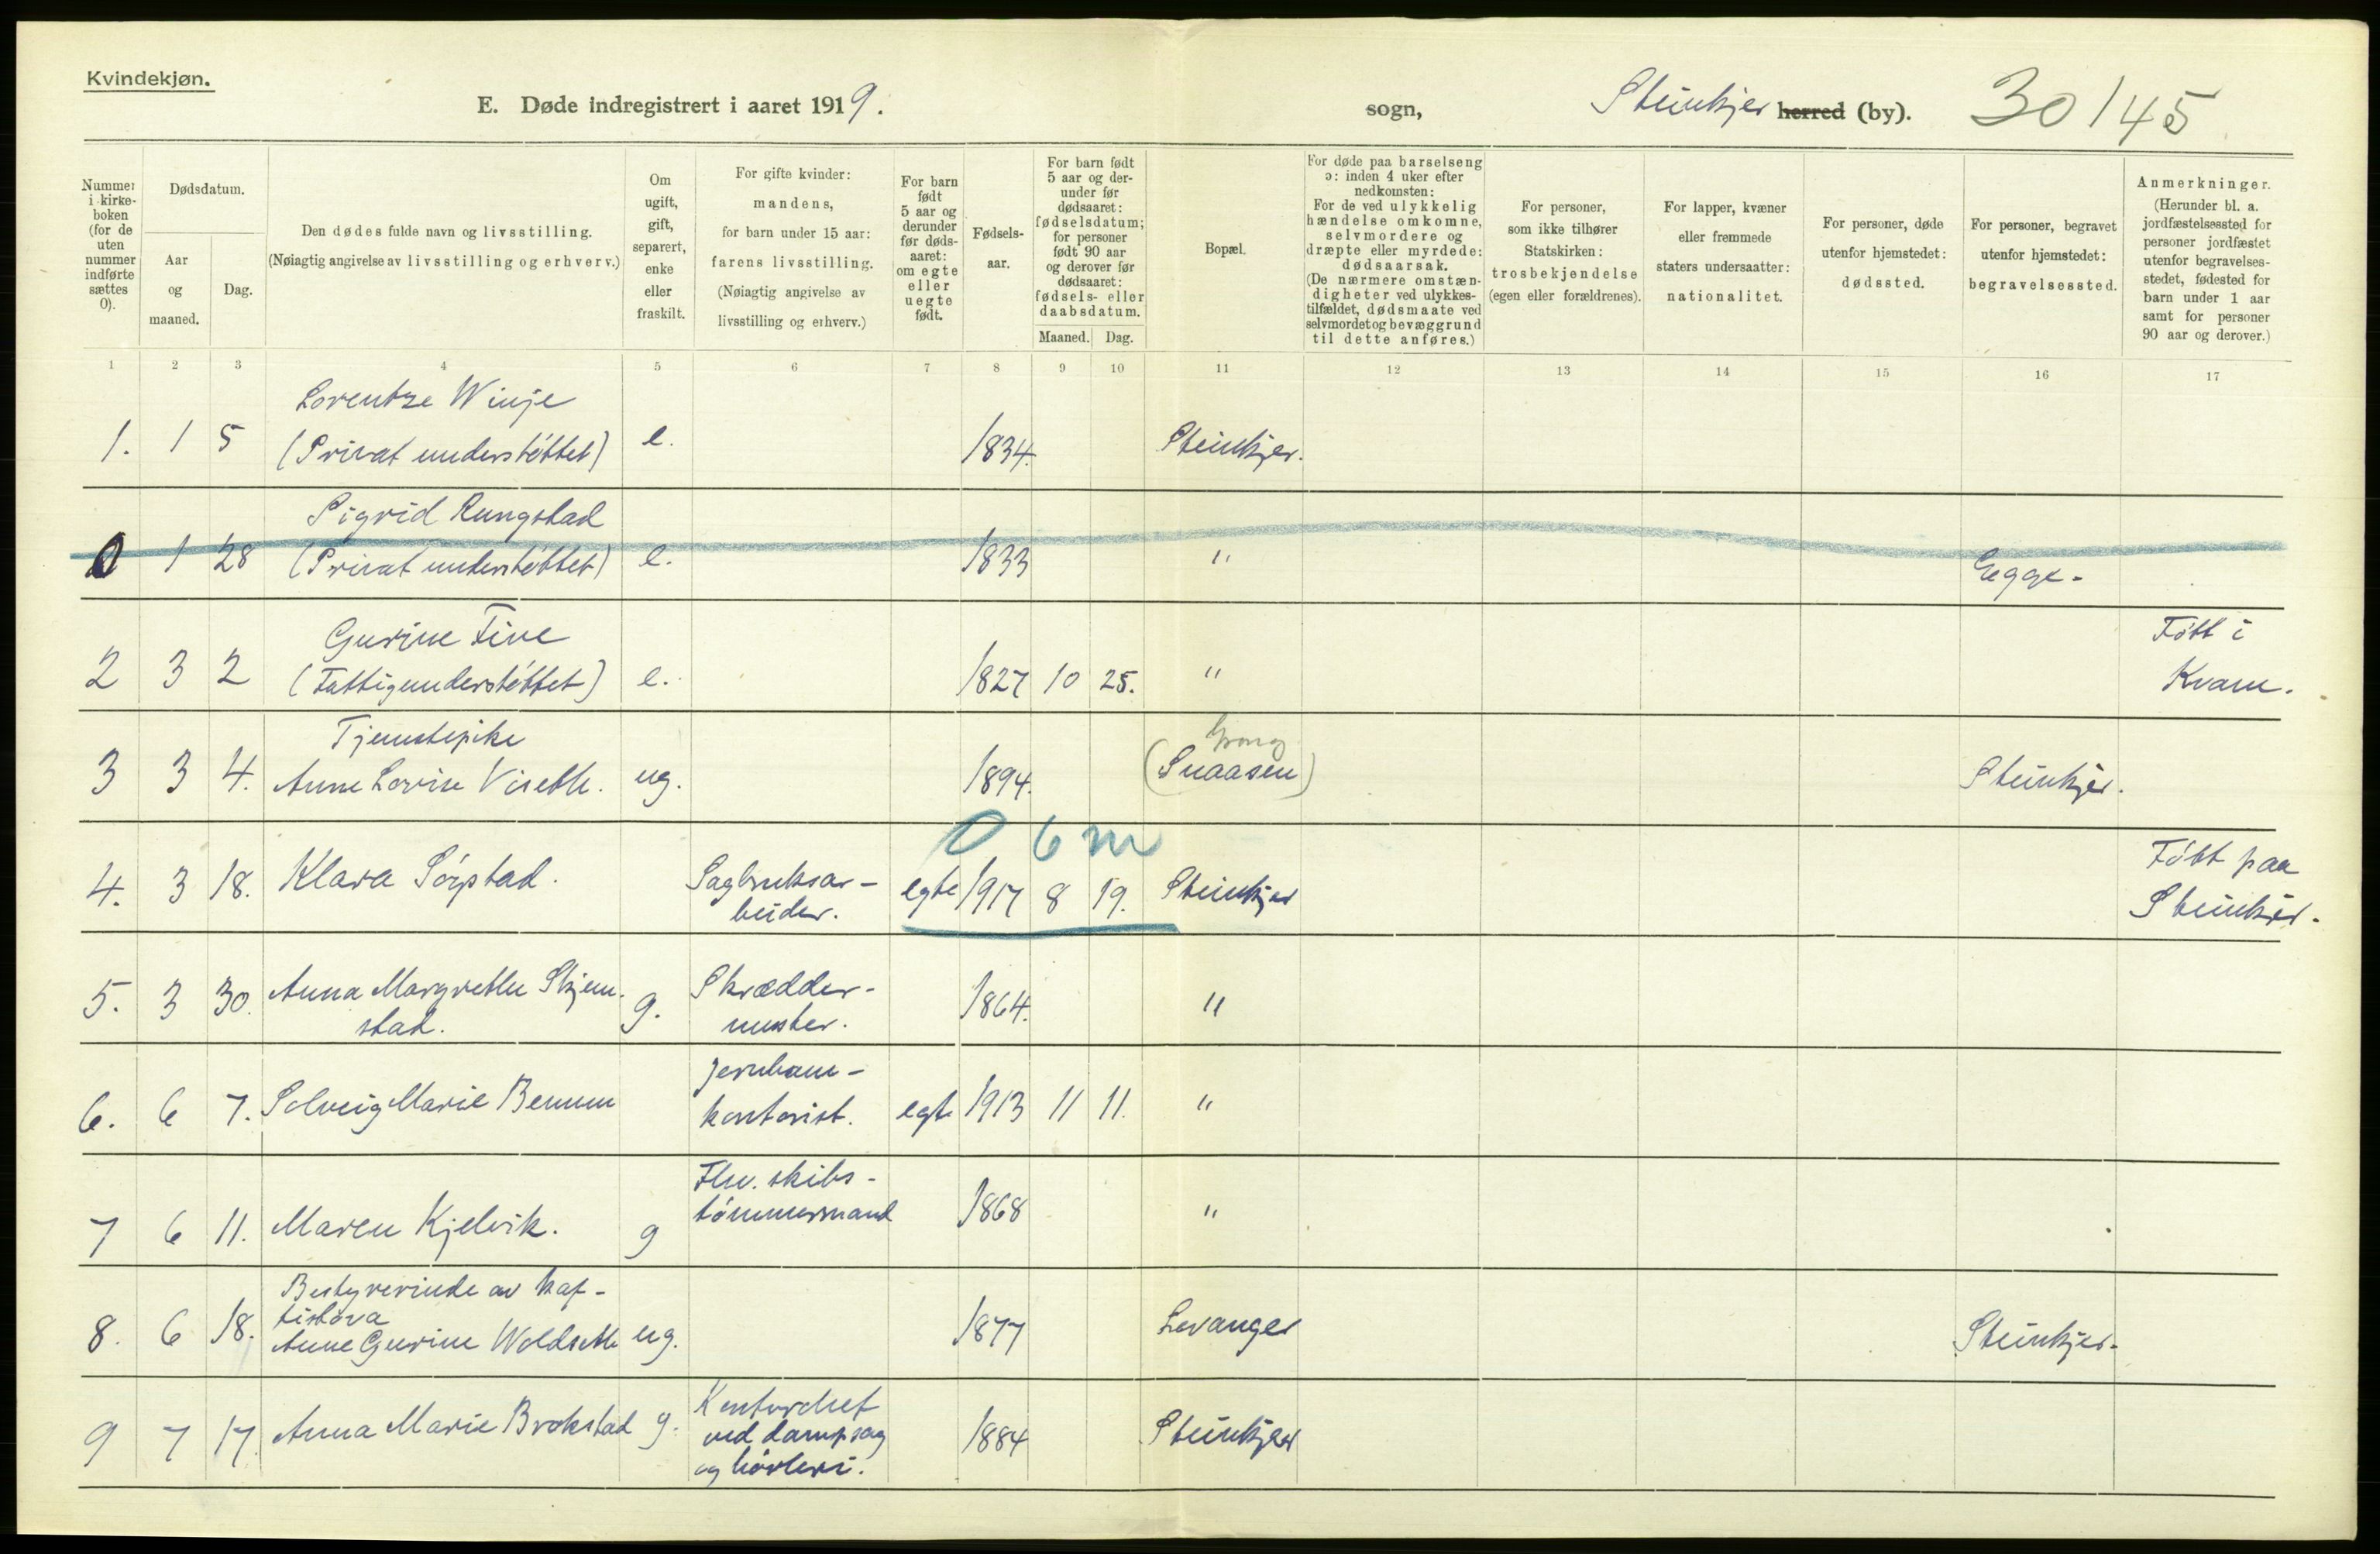 Kvindekjøn.
E. Døde indregistrert i aaret 1919.
sogn,
Steinkjer herred (by).
30/45
Nummer i kirke-boken (for de uten nummer indførte sættes 0).
Dødsdatum.
Aar og maaned.
Dag.
Den dødes fulde navn og livsstilling.
(Nøiagtig angivelse av livsstilling og erhverv.)
Om ugift, gift, separert, enke eller fraskilt.
For gifte kvinder: mandens, for barn under 15 aar: farens livsstilling. (Nøiagtig angivelse av livsstilling og erhverv.)
For barn født 5 aar og derunder før døds-aaret: om egte eller uegte født.
Fødsels-aar.
For barn født 5 aar og der-under før dødsaaret: fødselsdatum; for personer født 90 aar og derover før dødsaaret: fødsels- eller daabsdatum.
Maaned.
Dag.
Bopæl.
For døde paa barselseng ɔ: inden 4 uker efter nedkomsten: For de ved ulykkelig hændelse omkomne, selvmordere og dræpte eller myrdede: dødsaarsak. (De nærmere omstæn-digheter ved ulykkes-tilfældet, dødsmaate ved selvmordet og bevæggrund til dette anføres.)
For personer, som ikke tilhører Statskirken: trosbekjendelse (egen eller forældrenes).
For lapper, kvæner eller fremmede staters undersaatter: nationalitet.
For personer, døde utenfor hjemstedet: dødssted.
For personer, begravet utenfor hjemstedet: begravelsessted.
Anmerkninger. (Herunder bl. a. jordfæstelsessted for personer jordfæstet utenfor begravelses-stedet, fødested for barn under 1 aar samt for personer 90 aar og derover.)
1 2 3 4 5 6 7 8 9 10 11 12 13 14 15 16 17
Lorentze Winje
1. 1 5 (Privat understøttet) e. 1834. Steinkjer.
Sigrid Rungstad
0 1 28 (Privat understøttet) e. 1833 " Egge.
Gurine Five Født i
2 3 2 (Fattigunderstøttet) e. 1827 10 25. " Kvam.
Tjenestepike Grong
3 3 4. Anne Lovise ug. 1894. (Snaasen) Steinkjer.
0 6 m
4. 3 18. Klara Sørstad. Sagbruksar- egte 1917 8 19. Steinkjer Født paa
beider. Steinkjer.
5. 3 30. Anna Margrethe Skjem- g. Skrædder- 1864. "
stad. mester.
Jernbane-
6. 6 7. Solveig Marie Benum kontorist. egte 1913 11 11. "
Fhv. skibs-
7 6 11. Maren Kjelvik. g tømmermand 1868 "
Bestyrerinde av kaf-
fistova
8. 6 18. Anne Gurine Woldseth ug. 1877 Levanger Steinkjer.
Kontorchef
9 7 17. Anna Marie Brokstad g. ved dampsag 1884 Steinkjer
og høvleri.